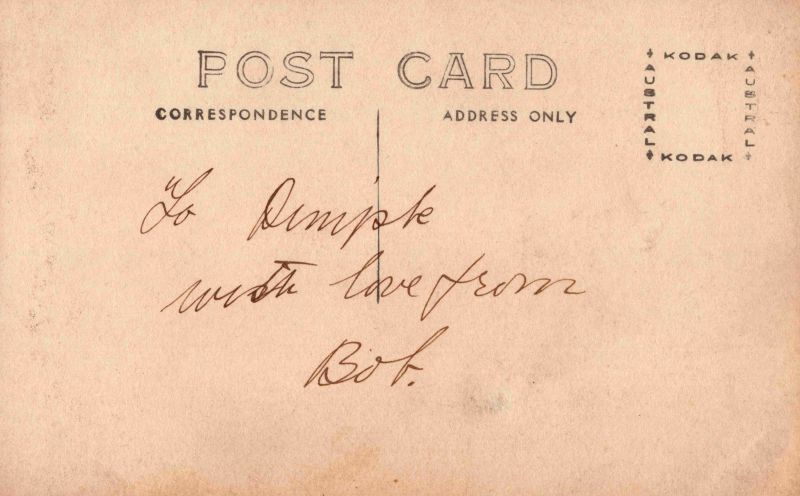 POST CARD
CORRESPONDENCE
ADDRESS ONLY
KODAK
AUSTRAL
AUSTRAL
KODAK
To Dimple
with love from
Bob.